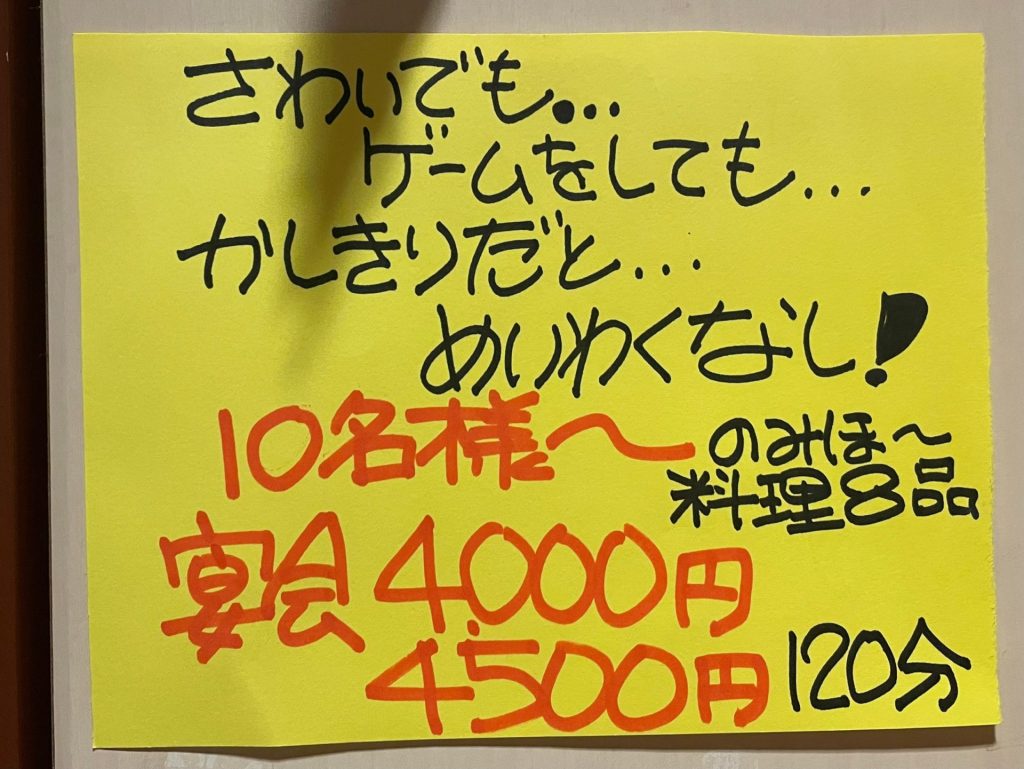 さわいでも...
ゲームをしても...
かしきりだと...
めいわくなし!
10名様〜
のみほ〜
料理8品
宴会4.000円
4.500円 120分